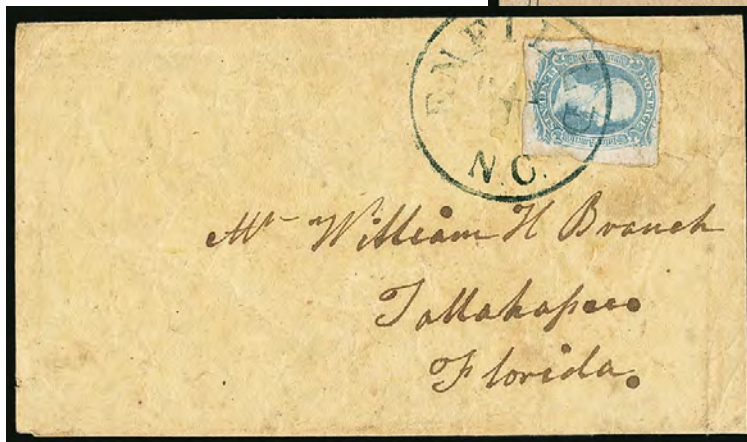 ENFIELD
N.C.
POSTAGE
Mr William H Branch
Tallahassee
Florida.